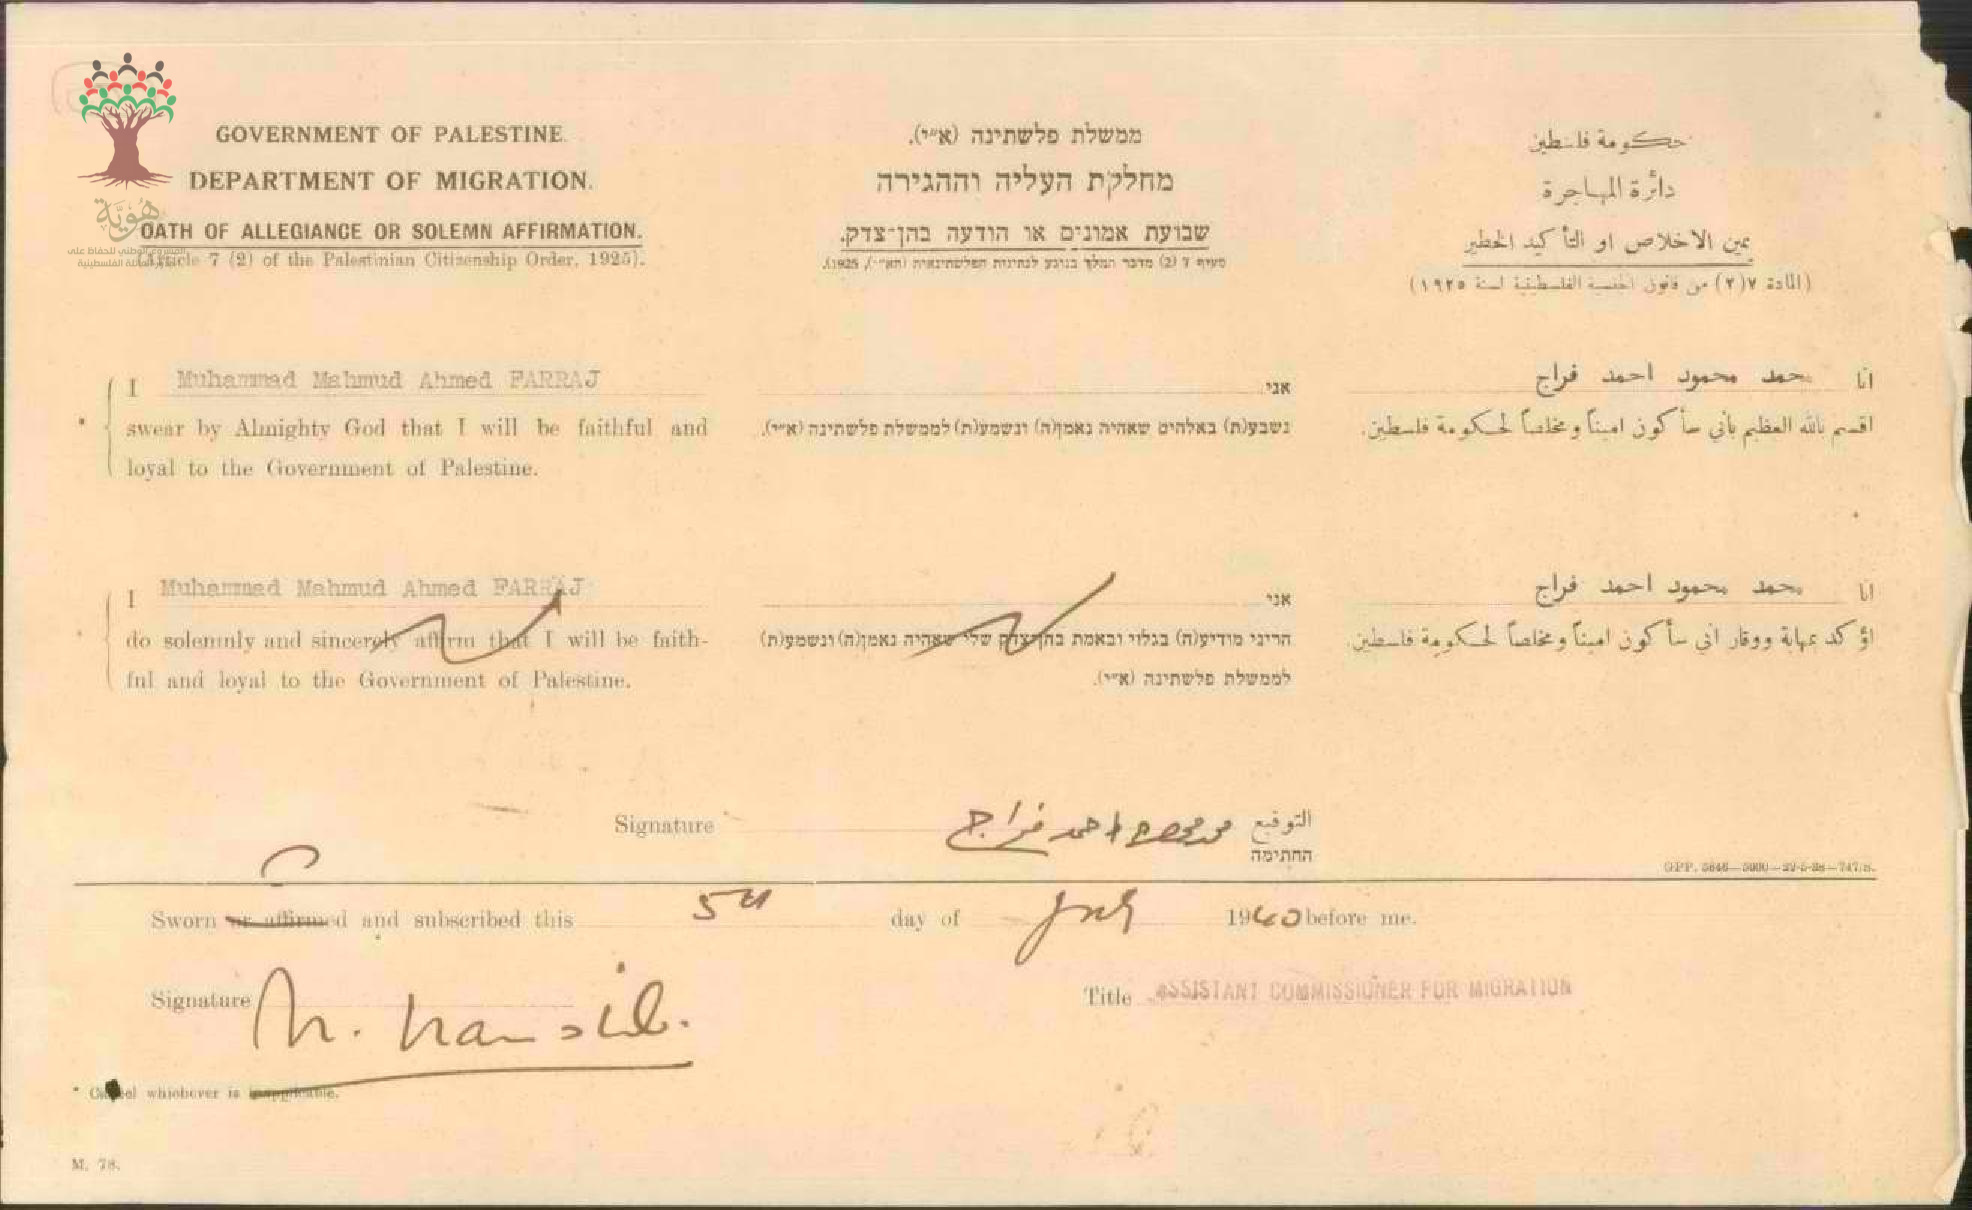 هُويَّة
المشروع الوطني للحفاظ على
العائلة الفلسطينية
GOVERNMENT OF PALESTINE.
DEPARTMENT OF MIGRATION.
OATH OF ALLEGIANCE OR SOLEMN AFFIRMATION.
(Article 7 (2) of the Palestinian Citizenship Order, 1925).
ממשלת פלשתינה (א״י).
מחלקת העליה וההגירה
שבועת אמונים או הודעה בהן־צדק.
סעיף 7 (2) מדבר המלך בנוגע לנתינות הפלשתינאית (הא״י), 1925).
حكومة فلسطين
دائرة المهاجرة
يمين الاخلاص او التأكيد الخطير
(المادة ٧(٢) من قانون الجنسية الفلسطينية لسنة ١٩٢٥)
I Muhammad Mahmud Ahmed FARRAJ
swear by Almighty God that I will be faithful and
loyal to the Government of Palestine.
אני
נשבע(ת) באלהים שאהיה נאמן(ה) ונשמע(ת) לממשלת פלשתינה (א״י).
انا محمد محمود احمد فراج
اقسم بالله العظيم بأني سأكون اميناً ومخلصاً لحكومة فلسطين.
I Muhammad Mahmud Ahmed FARRAJ
do solemnly and sincerely affirm that I will be faith-
ful and loyal to the Government of Palestine.
אני
הריני מודיע(ה) בגלוי ובאמת בהן־צדק שלי שאהיה נאמן(ה) ונשמע(ת)
לממשלת פלשתינה (א״י).
انا محمد محمود احمد فراج
اؤكد بمهابة ووقار اني سأكون اميناً ومخلصاً لحكومة فلسطين.
Signature محمد محمود احمد فراج التوقيع
החתימה
GPP. 5846—5000—29-5-38—747/s.
Sworn or affirmed and subscribed this 5th day of July 1940 before me.
Signature Title ASSISTANT COMMISSIONER FOR MIGRATION
* Cancel whichever is inapplicable.
M. 78.